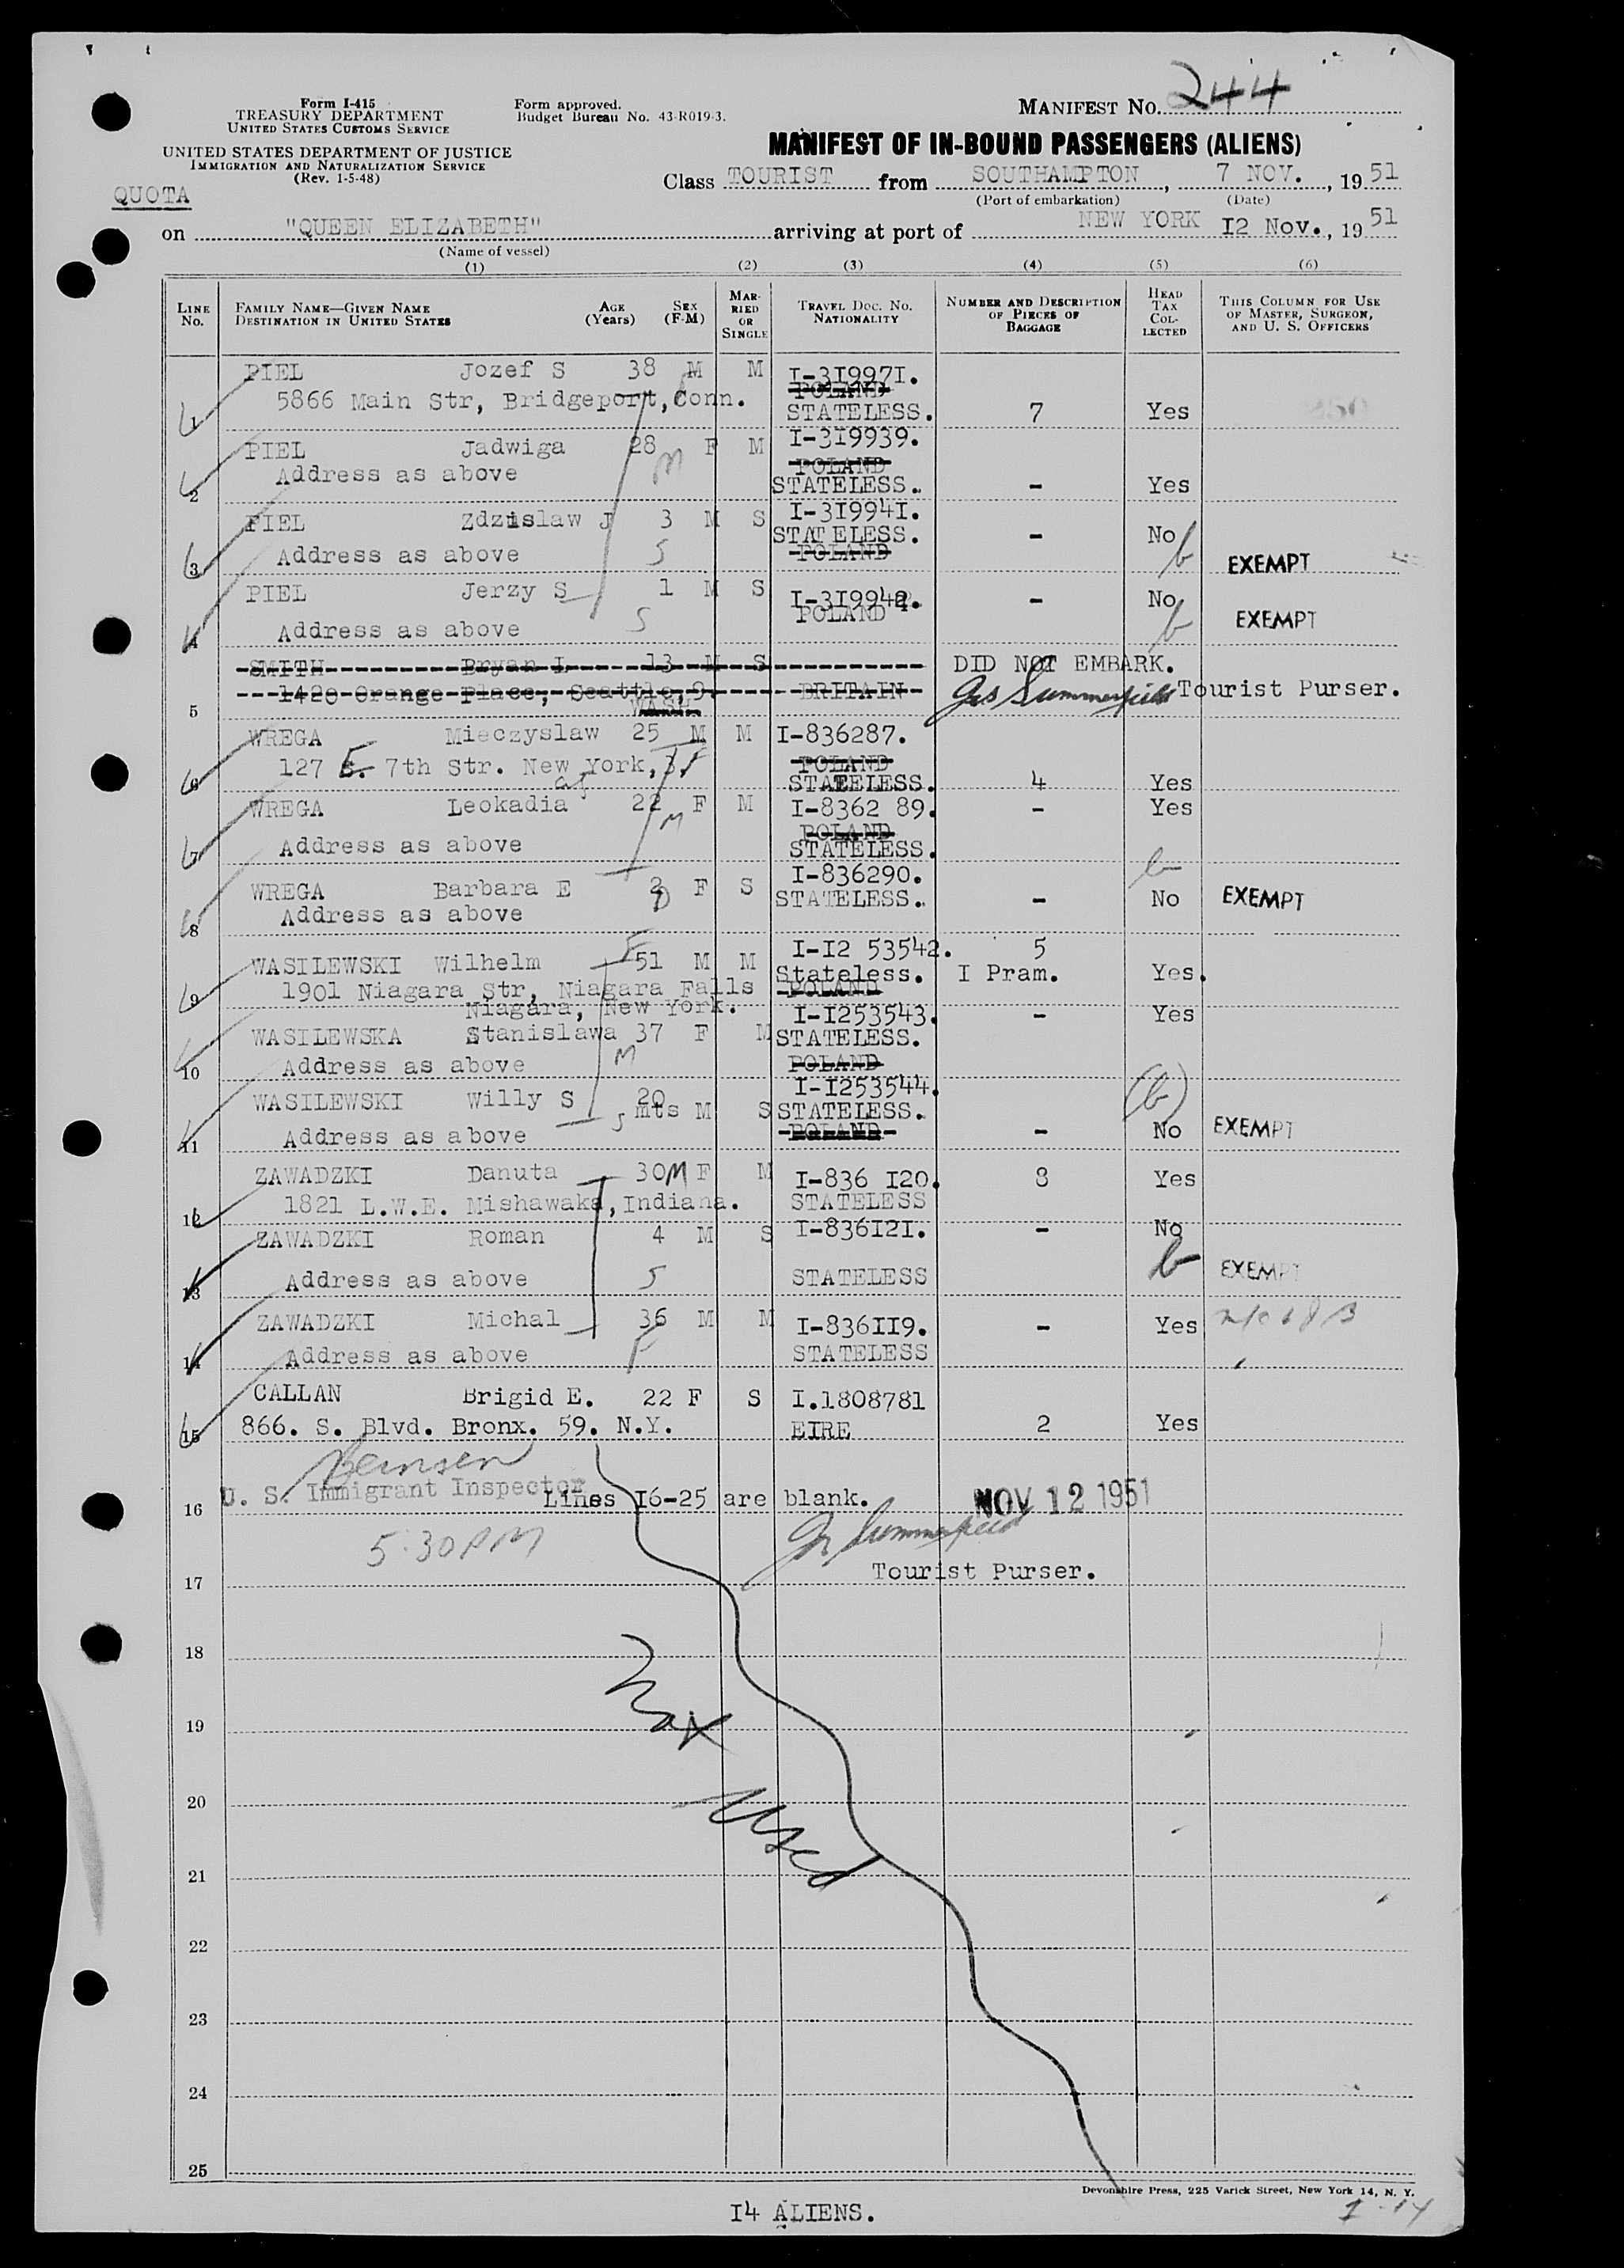 Form I-415
TREASURY DEPARTMENT
UNITED STATES CUSTOMS SERVICE
Form approved.
Budget Bureau No. 43-R019-3.
MANIFEST No. 244
UNITED STATES DEPARTMENT OF JUSTICE
IMMIGRATION AND NATURALIZATION SERVICE
(Rev. 1-5-48)
MANIFEST OF IN-BOUND PASSENGERS (ALIENS)
QUOTA
Class TOURIST from SOUTHAMPTON, 7 NOV., 1951
(Port of embarkation) (Date)
on "QUEEN ELIZABETH" arriving at port of NEW YORK I2 Nov., 1951
(Name of vessel)
(1) (2) (3) (4) (5) (6)
LINE No.
FAMILY NAME—GIVEN NAME
DESTINATION IN UNITED STATES
AGE (Years)
SEX (F-M)
MARRIED OR SINGLE
TRAVEL DOC. No.
NATIONALITY
NUMBER AND DESCRIPTION OF PIECES OF BAGGAGE
HEAD TAX COLLECTED
THIS COLUMN FOR USE OF MASTER, SURGEON, AND U. S. OFFICERS
PIEL Jozef S 38 M M I-3I997I.
POLAND
5866 Main Str, Bridgeport, Conn. STATELESS. 7 Yes
1
PIEL Jadwiga 28 F M I-3I9939.
POLAND
Address as above STATELESS. - Yes
2
PIEL Zdzislaw J 3 M S I-3I994I.
STATELESS. - No
3 Address as above POLAND EXEMPT
PIEL Jerzy S 1 M S I-3I9942. - No
POLAND
4 Address as above EXEMPT
SMITH Bryan L 13 M S DID NOT EMBARK.
1420 Orange Place, Seattle, 9. BRITAIN Tourist Purser.
WASH.
5
WREGA Mieczyslaw 25 M M I-836287.
127 E. 7th Str. New York, 3. POLAND
6 STATELESS. 4 Yes
WREGA Leokadia 22 F M I-8362 89. - Yes
POLAND
7 Address as above STATELESS.
I-836290.
WREGA Barbara E 2 F S STATELESS. - No EXEMPT
8 Address as above
I-I2 53542. 5
WASILEWSKI Wilhelm 51 M M Stateless. I Pram. Yes.
9 1901 Niagara Str, Niagara Falls POLAND
Niagara, New York. I-I253543. - Yes
WASILEWSKA Stanislawa 37 F M STATELESS.
10 Address as above POLAND
I-I253544.
WASILEWSKI Willy S 20 mts M S STATELESS.
11 Address as above POLAND - No EXEMPT
ZAWADZKI Danuta 30 M F M I-836 I20. 3 Yes
12 1821 L.W.E. Mishawaka, Indiana. STATELESS
ZAWADZKI Roman 4 M S I-836I2I. - No
13 Address as above STATELESS EXEMPT
ZAWADZKI Michal 36 M M I-836II9. - Yes
14 Address as above STATELESS
CALLAN Brigid E. 22 F S I.1808781
15 866. S. Blvd. Bronx. 59. N.Y. EIRE 2 Yes
U. S. Immigrant Inspector
16 Lines I6-25 are blank. NOV 12 1951
5:30 PM
Tourist Purser.
17
18
Not
19
20
Used
21
22
23
24
25
Devonshire Press, 225 Varick Street, New York 14, N. Y.
I4 ALIENS.
1-14